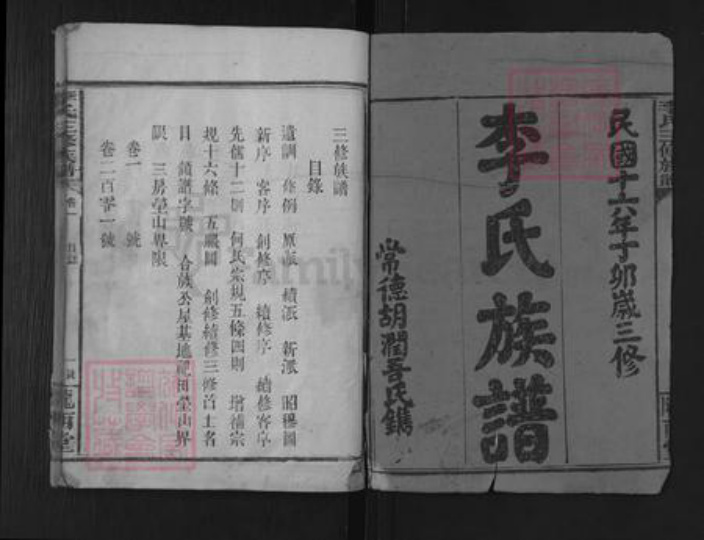 民國十六年丁卯歲三修
李氏族譜
常德胡潤吾氏鐫
三修族譜
目錄
遺訓 條例 原派 續派 新派 昭穆圖
新序 客序 創修序 續修序 續修客序
先儒十二則 何氏宗規五條四則 增補宗
規十六條 五服圖 創修續修三修首士名
目 領譜字號 合族公屋基地祀田塋山界
限 三房塋山界限
卷一 號
卷二百零一號